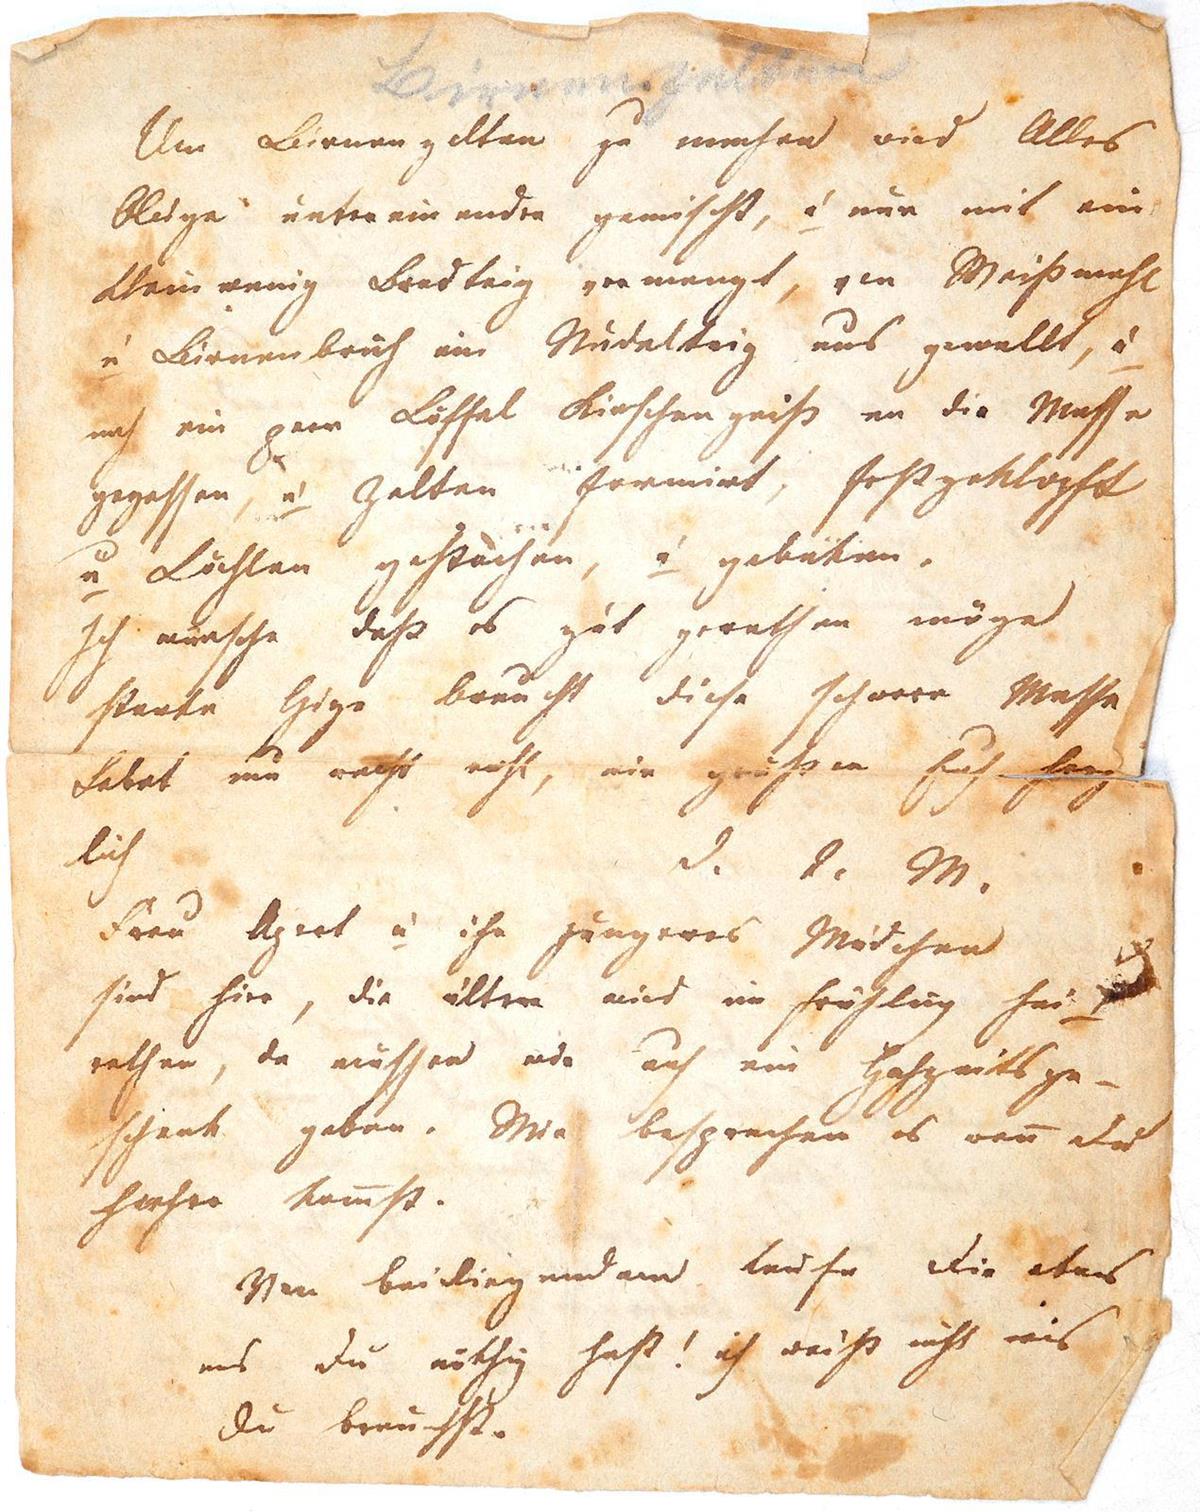 Birnenzelten
Um Birnenzelten zu machen wird Alles
Obige untereinander gemischt, u nur mit ein
klein wenig Brodteig vermengt, von Weißmehl
u Birnenbrüh ein Nudelteig aus gewellt, u
noch ein paar Löffel Kirschengeist an die Masse
gegossen, u Zelten formirt, festgeklopft
u Löchlen gestochen, u gebaken.
Ich wünsche daß es gut gerathen möge
starke Hize braucht diese schwere Masse
Lebet nun recht wohl, wir grüßen Euch herz
lich D. t. M.
Frau u ihr jüngeres Mädchen
sind hier, die ältere wird im Frühling hei-
rathen, da müssen wir auch ein Hochzeitsge-
schenk geben. Wir besprechen es wen̅ Du
hierher kom̅st.
Von beiliegendem kaufe Dir etwas
was Du nöthig hast! ich weiß nicht was
Du brauchst.